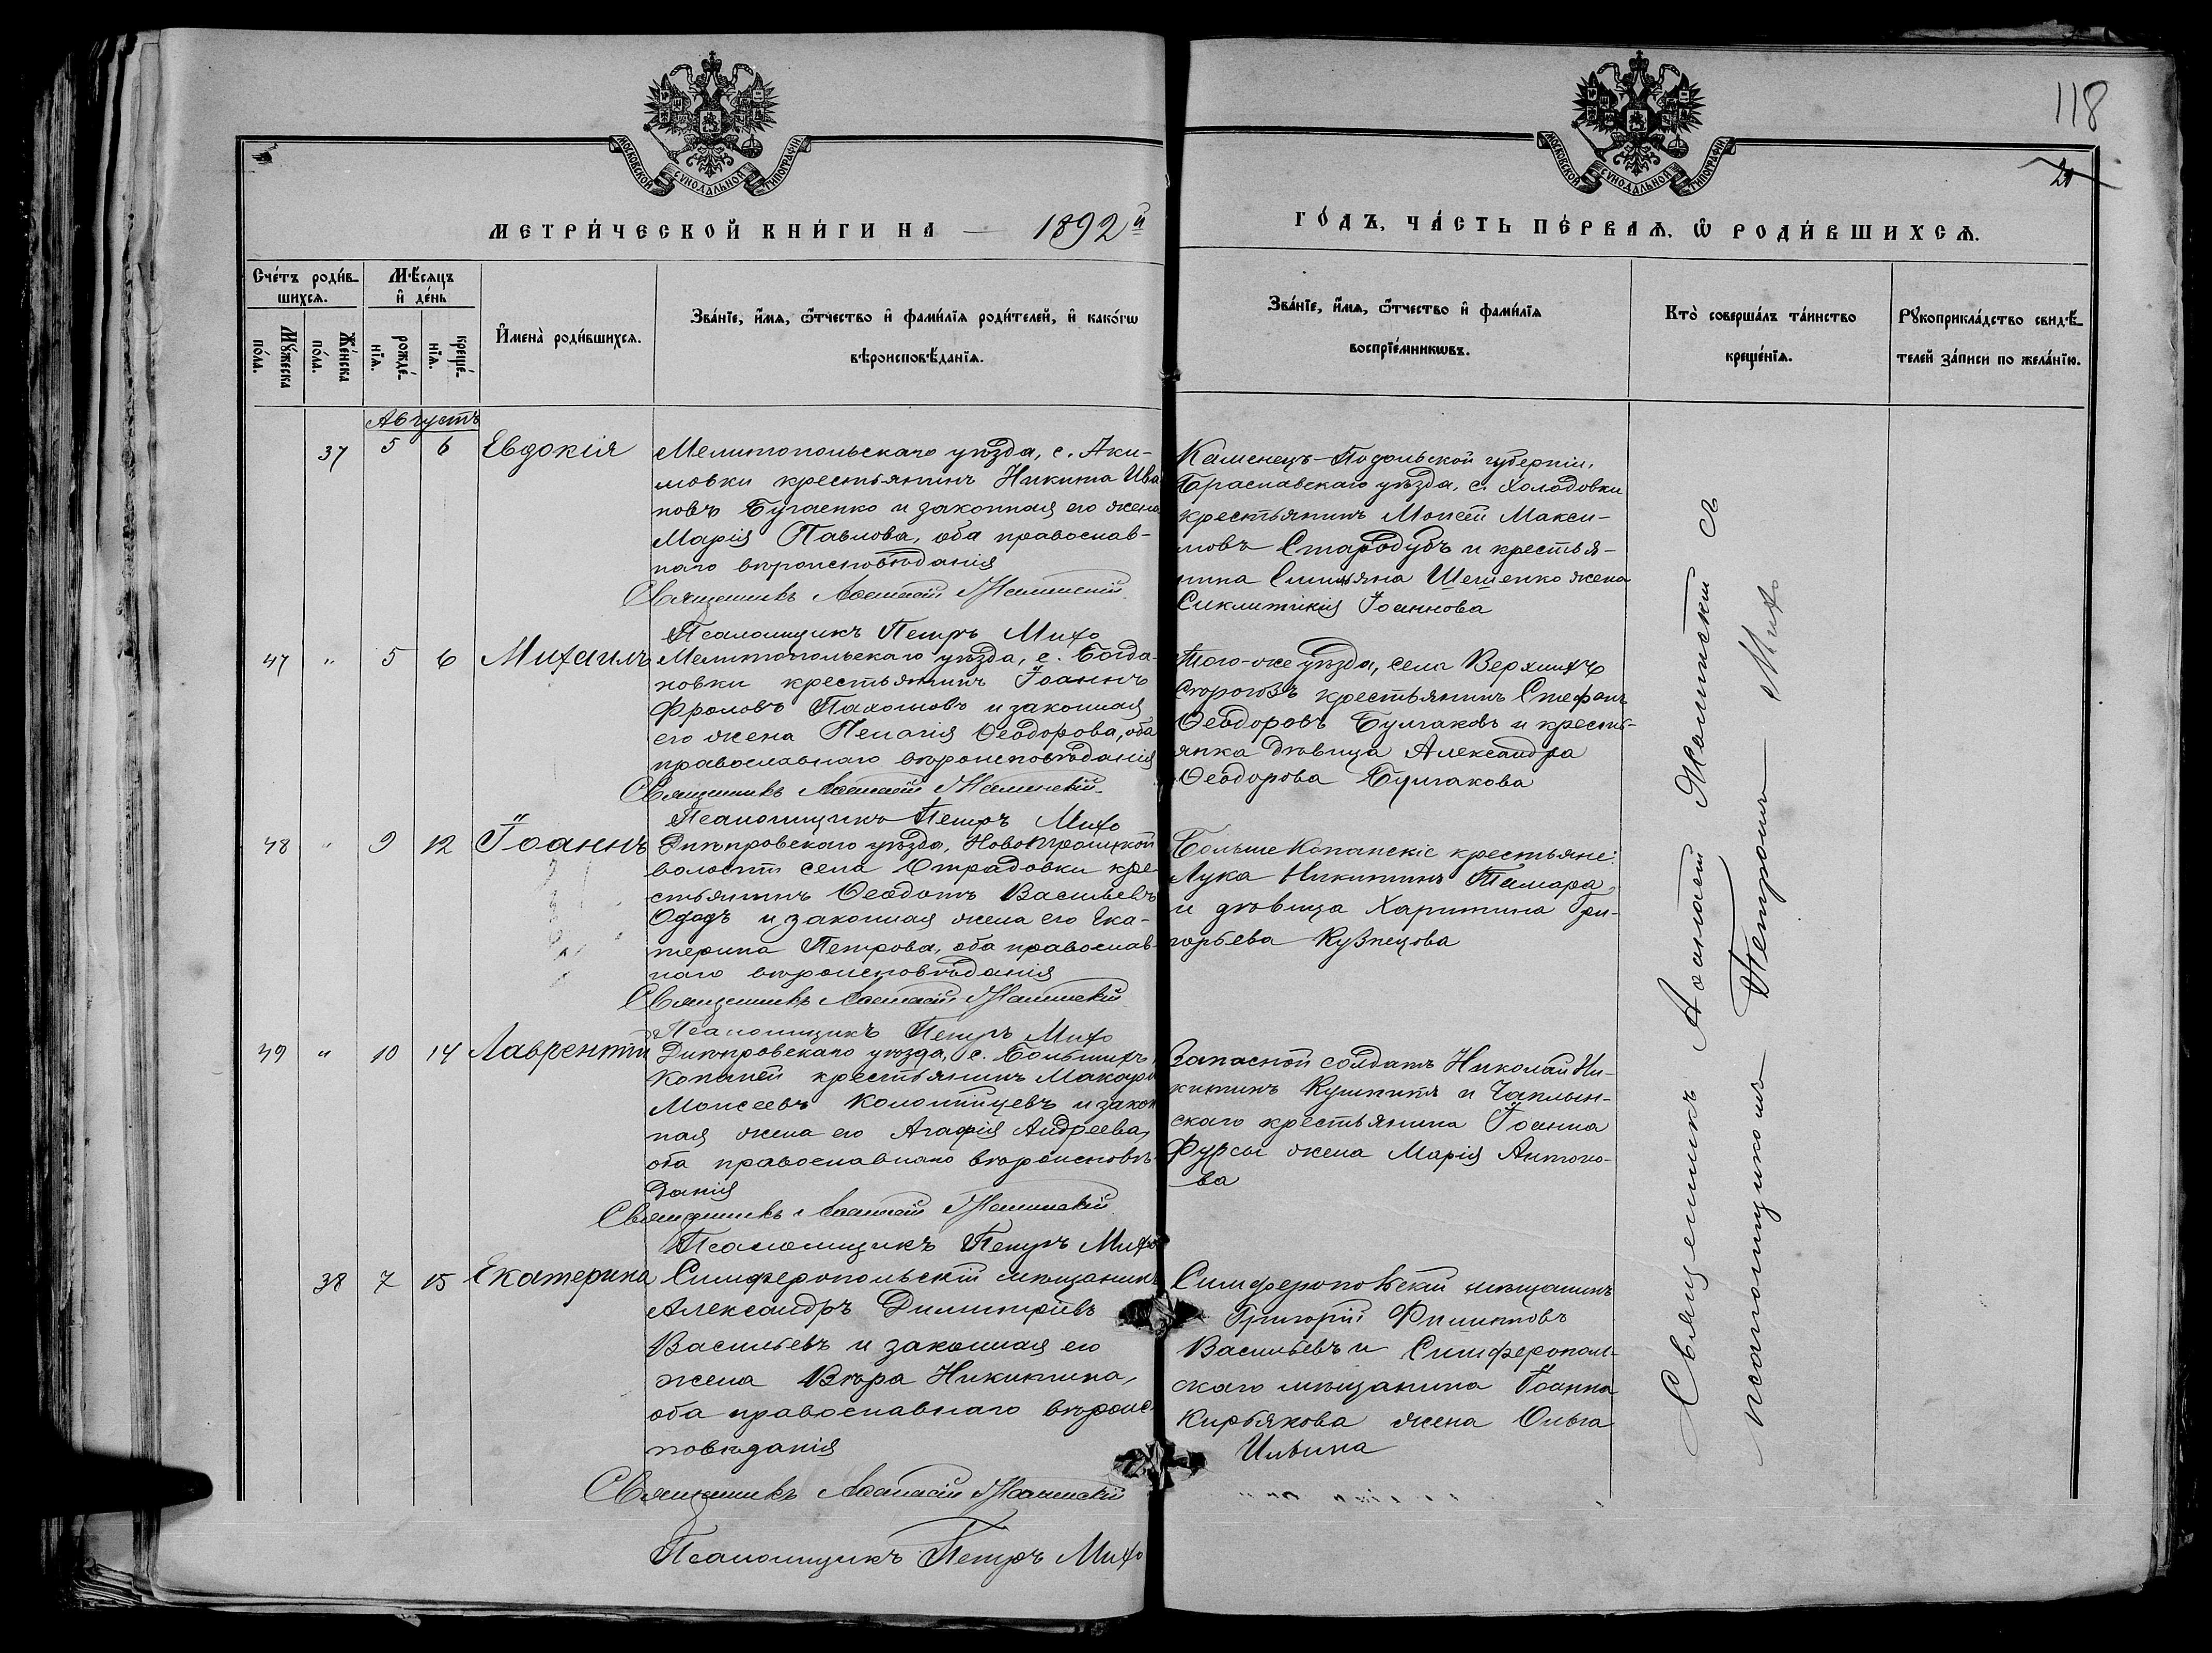 118
МОСКОВСКОЙ СУНОДАЛЬНОЙ ТИПОГРАФІИ
МОСКОВСКОЙ СУНОДАЛЬНОЙ ТИПОГРАФІИ
МЕТРИ́ЧЕСКОЙ КНИ́ГИ НА — 1892й
ГО́ДЪ, ЧА́СТЬ ПЕ́РВАѦ, Ѡ҆ РОДИ́ВШИХСѦ.
Сче́тъ роди́в-
шихсѧ.
Мꙋ́жеска
по́ла.
Же́нска
по́ла.
Мѣ́сѧцъ
и҆ де́нь
рожде́-
нїѧ.
креще́-
нїѧ.
И҆мена̀ роди́вшихсѧ.
Зва́нїе, и҆́мѧ, ѻ҆́тчество и҆ фами́лїѧ роди́телей, и҆ како́гѡ
вѣроисповѣ́данїѧ.
Зва́нїе, и҆́мѧ, ѻ҆́тчество и҆ фами́лїѧ
воспрїе́мникѡвъ.
Кто̀ соверша́лъ та́инство
креще́нїѧ.
Рꙋкоприкла́дство свидѣ́-
телей за́писи по жела́нїю.
Августъ
37 5 6 Евдокія
Мелитопольскаго уѣзда, с. Аки-
мовки крестьянинъ Никита Ива
новъ Бугаенко и законная его жена
Марія Павлова, оба православ-
наго вѣроисповѣданія
Священникъ Аѳанасій
Псаломщикъ Петръ Михо
Каменецъ-Подольской губерніи,
Браславскаго уѣзда, с. Холодовки
крестьянинъ Моисей Макси-
мовъ Стародубъ и крестья-
нина Емиліяна Шешенко жена
Сиклитикія Іоаннова
47 " 5 6 Михаилъ
Мелитопольскаго уѣзда, с. Богда-
новки крестьянинъ Іоаннъ
Фроловъ Пахомовъ и законная
его жена Пелагія Ѳеодорова, оба
православнаго вѣроисповѣданія
Священникъ Аѳанасій
Псаломщикъ Петръ Михо
Того-же уѣзда, села Верхнихъ
Сѣрогозъ крестьянинъ Стефанъ
Ѳеодоровъ Булгаковъ и кресть-
янка дѣвица Александра
Ѳеодорова Булгакова
48 " 9 12 Іоаннъ
Днѣпровскаго уѣзда, Новотроицкой
волости села Отрадовки кре-
стьянинъ Ѳеодотъ Васильевъ
и законная жена его Ека-
терина Петрова, оба православ-
наго вѣроисповѣданія
Священникъ Аѳанасій
Псаломщикъ Петръ Михо
Больше Копанскіе крестьяне:
Лука Никитинъ Тамара
и дѣвица Харитина Гри-
горьева Кузнецова
49 " 10 14 Лаврентій
Днѣпровскаго уѣзда, с. Большихъ
Копаней крестьянинъ Макарій
Моисеевъ Коломійцевъ и закон
ная жена его Агафія Андреева,
оба православнаго вѣроисповѣ-
данія
Священникъ Аѳанасій
Псаломщикъ Петръ Михо
Запасной солдатъ Николай Ни-
китинъ и Чаплын-
скаго крестьянина Іоанна
Фурсы жена Марія Антоно-
ва
38 7 15 Екатерина
Симферопольскій мѣщанинъ
Александръ Димитріевъ
Васильевъ и законная его
жена Вѣра Никитина,
оба православнаго вѣроис-
повѣданія
Священникъ Аѳанасій
Псаломщикъ Петръ Михо
Симферопольскій мѣщанинъ
Григорій Филиповъ
Васильевъ и Симферополь-
скаго мѣщанина Іоанна
Кирьякова жена Ольга
Ильина
Священникъ Аѳанасій съ
псаломщикомъ Петромъ Михо